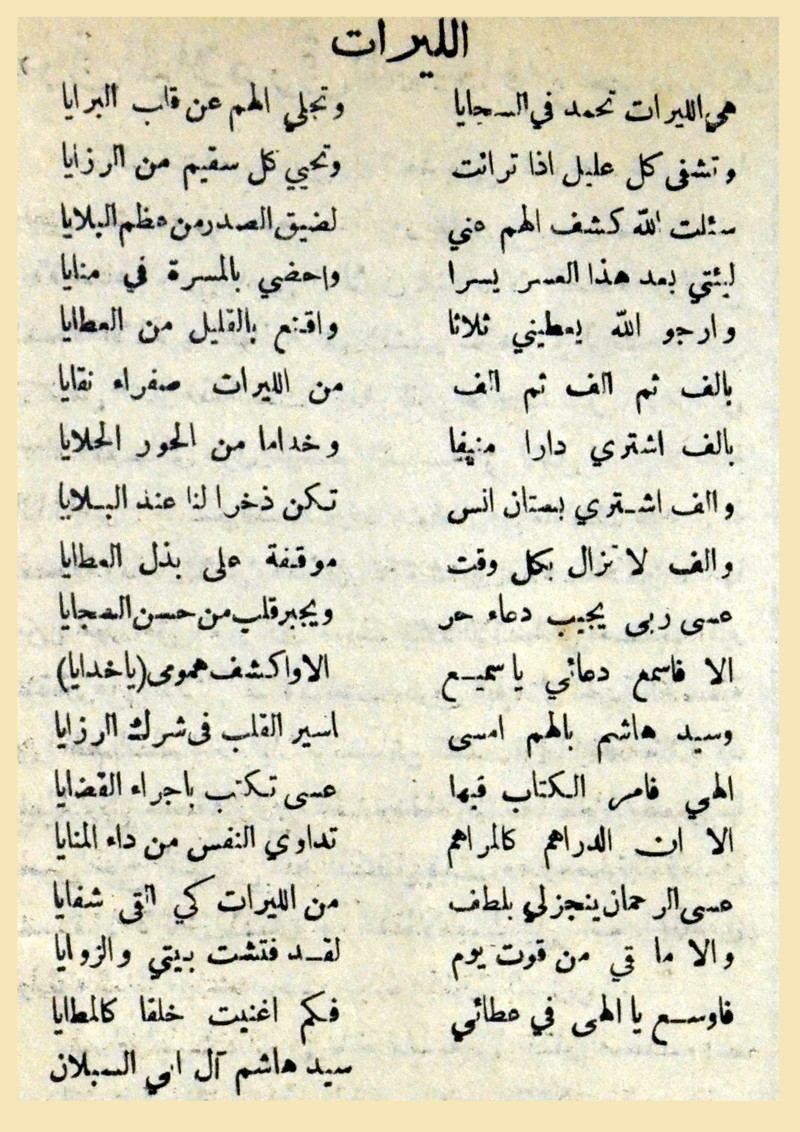 الليرات
هي الليرات تحمد في السجايا وتجلي الهم عن قلب البرايا
وتشفى كل عليل اذا ترائت وتحيي كل سقيم من الرزايا
سئلت الله كشف الهم عني لضيق الصدر من عظم البلايا
ليئتي بعد هذا العسر يسرا واحضي بالمسرة في منايا
وارجو الله يعطيني ثلاثا واقنع بالقليل من العطايا
بالف ثم الف ثم الف من الليرات صفراء نقايا
بالف اشتري دارا منيفا وخداما من الحور الحلايا
والف اشتري بستان انس تكن ذخرا لنا عند البلايا
والف لا تزال بكل وقت موقفة على بذل العطايا
عسى ربى يجيب دعاء حر ويجبر قلب من حسن السجايا
الا فاسمع دعائي يا سميع الا واكشف همومى (يا خدايا)
وسيد هاشم بالهم امسى اسير القلب فى شرك الرزايا
الهي فامر الكتاب فيها عسى تكتب باجراء القضايا
الا ان الدراهم كالمراهم تداوي النفس من داء المنايا
عسى الرحمان ينجزلي بلطف من الليرات كي القى شفايا
والا ما قي من قوت يوم لقد فتشت بيتي والزوايا
فاوسع يا الهى في عطائي فكم اغنيت خلقا كالمطايا
سيد هاشم آل ابي السبلان